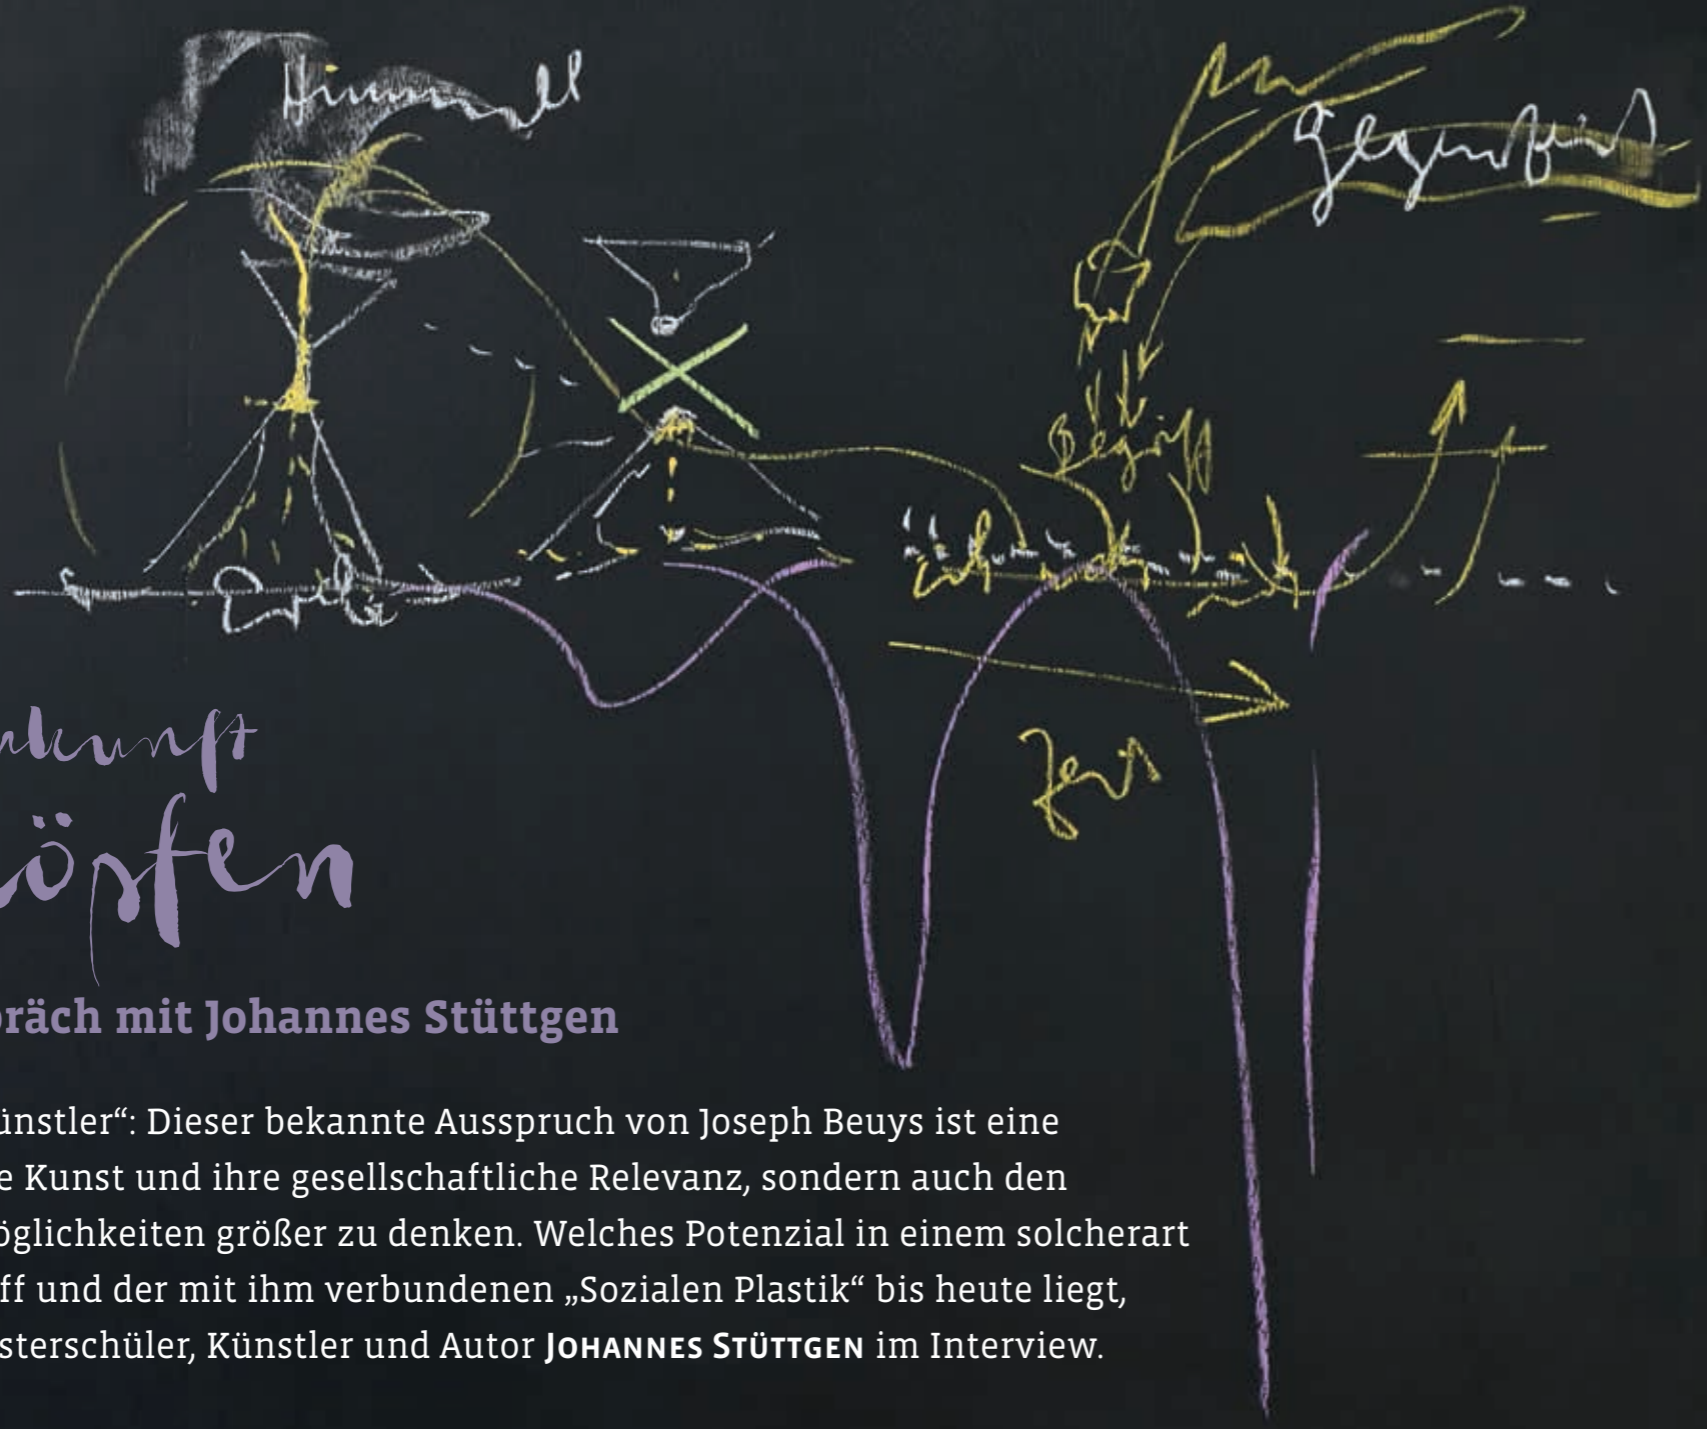 Himmel
Begriff
ukunft
öpfen
präch mit Johannes Stüttgen
ünstler“: Dieser bekannte Ausspruch von Joseph Beuys ist eine
e Kunst und ihre gesellschaftliche Relevanz, sondern auch den
öglichkeiten größer zu denken. Welches Potenzial in einem solcherart
ff und der mit ihm verbundenen „Sozialen Plastik“ bis heute liegt,
sterschüler, Künstler und Autor JOHANNES STÜTTGEN im Interview.